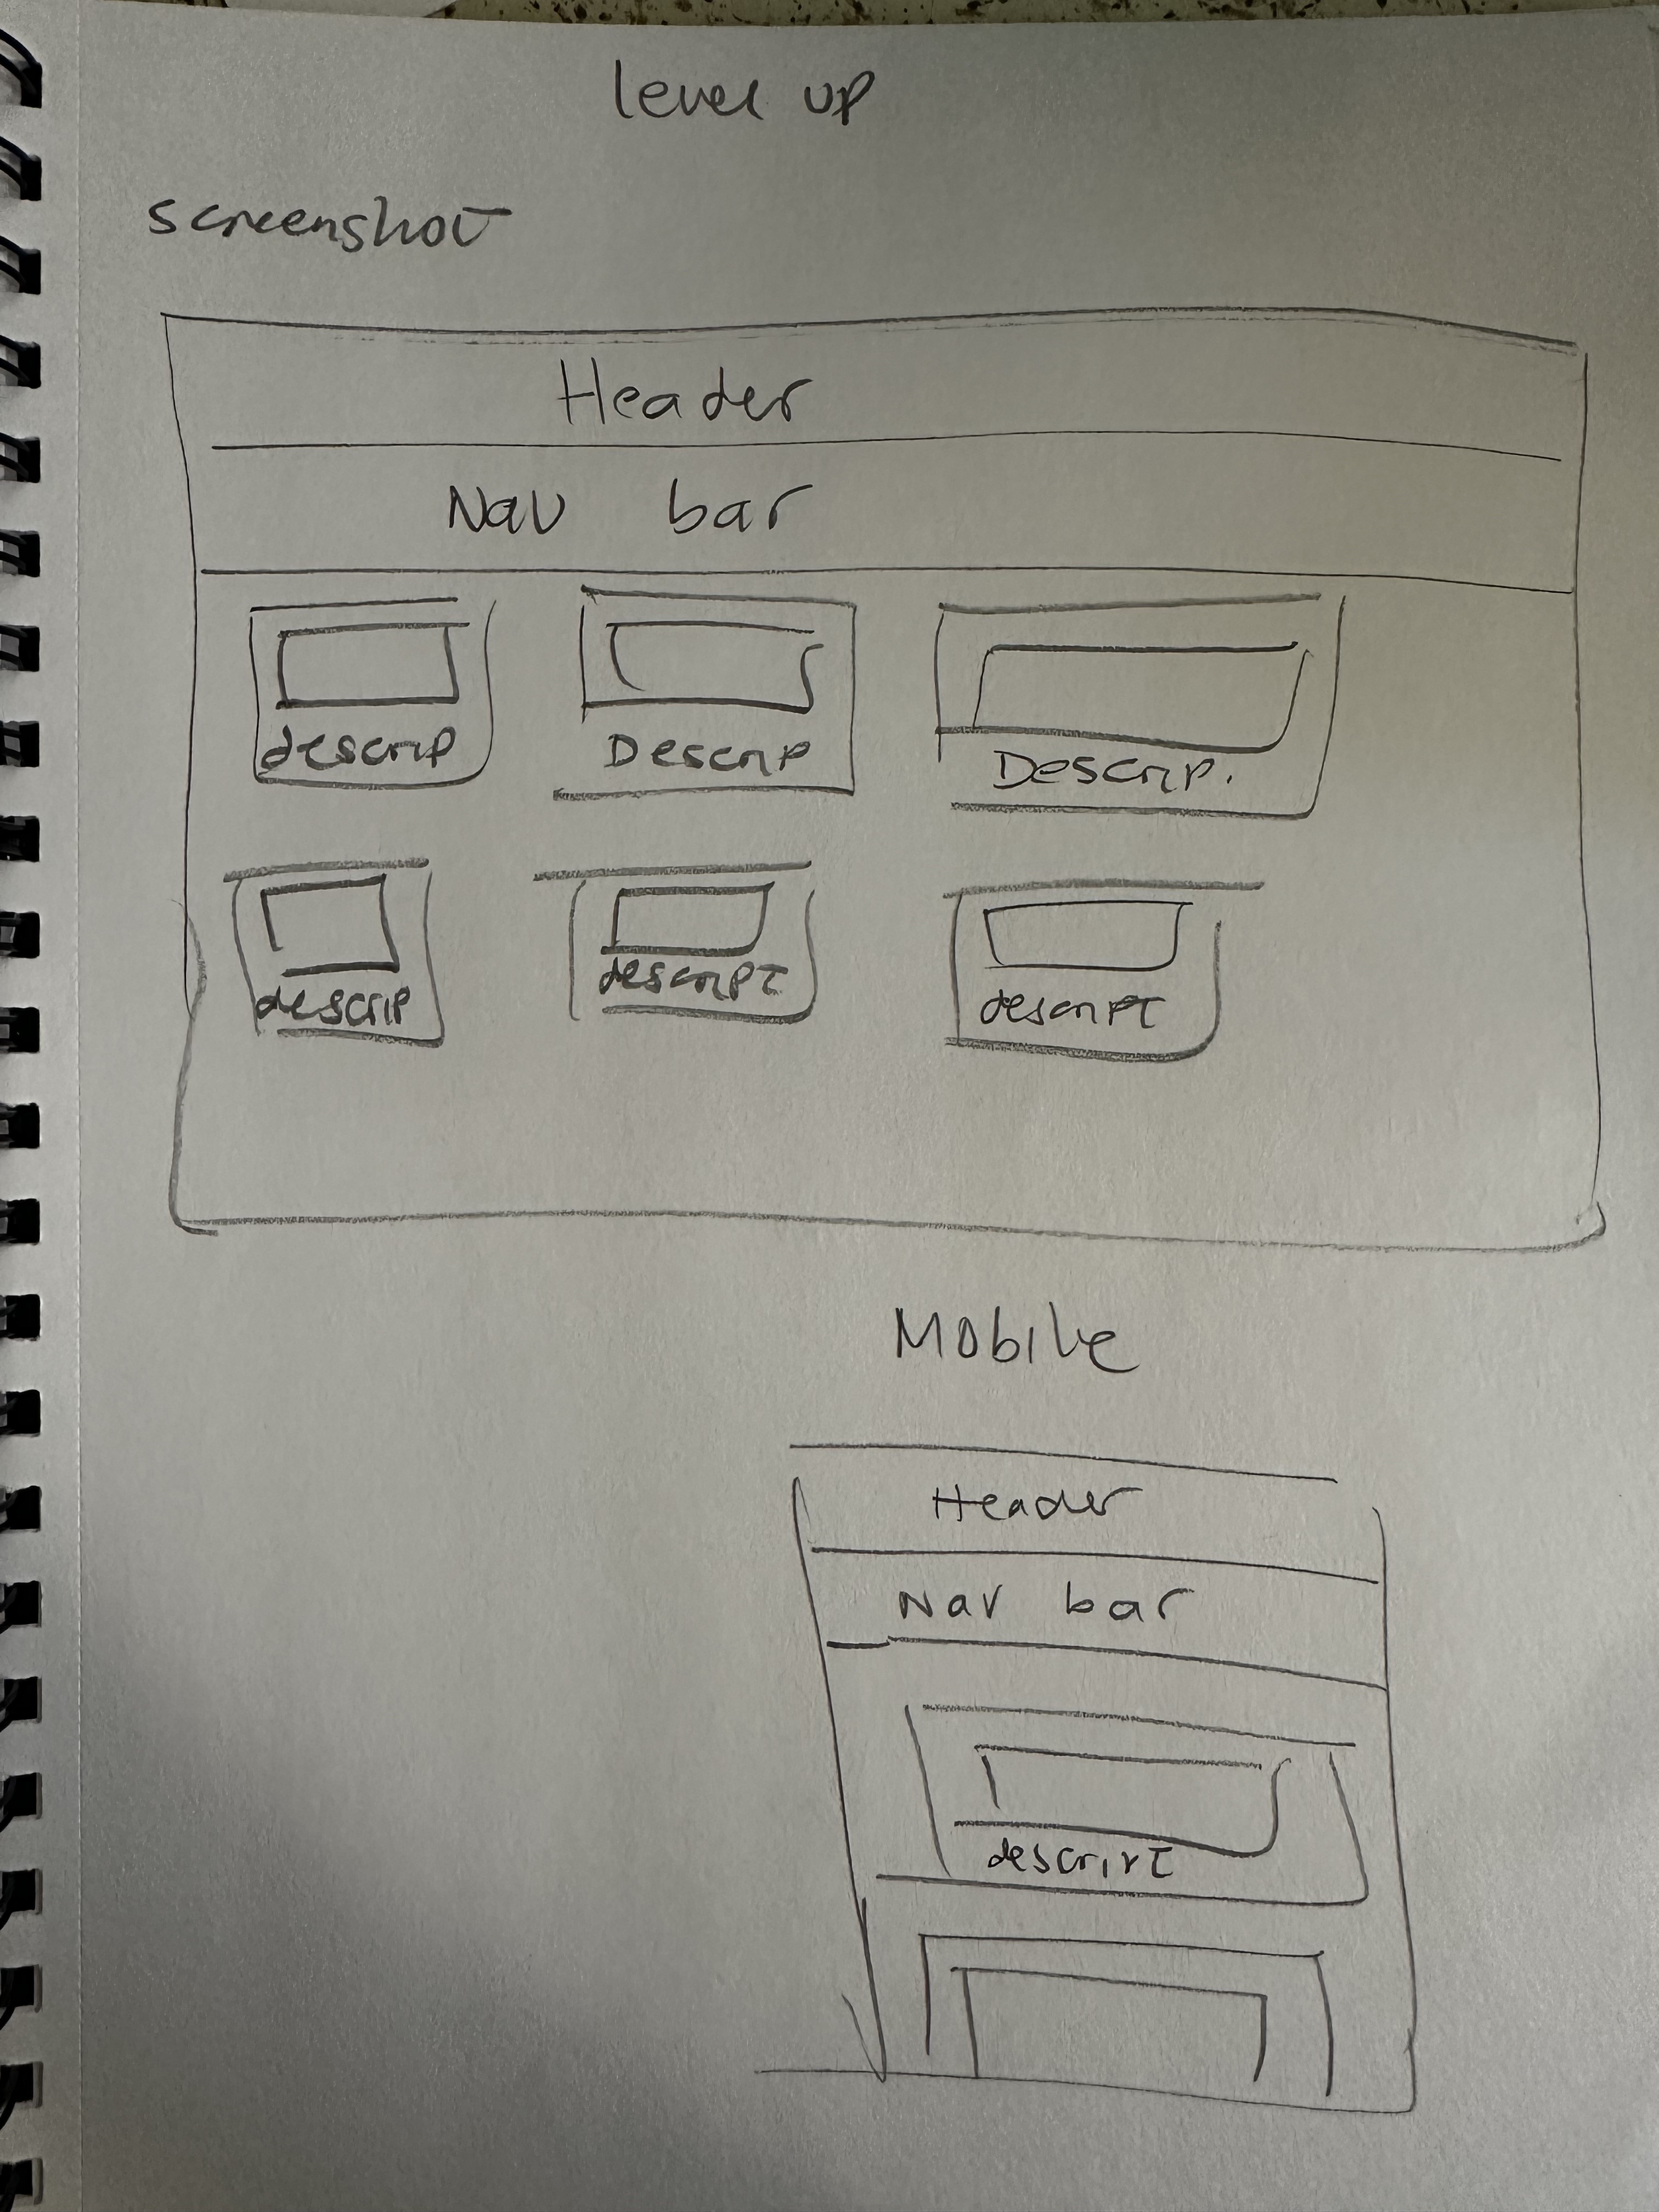 level up
screenshot
Header
Nav bar
descrip Descrip Descrip.
descrip descript descript
Mobile
Header
Nav bar
descript